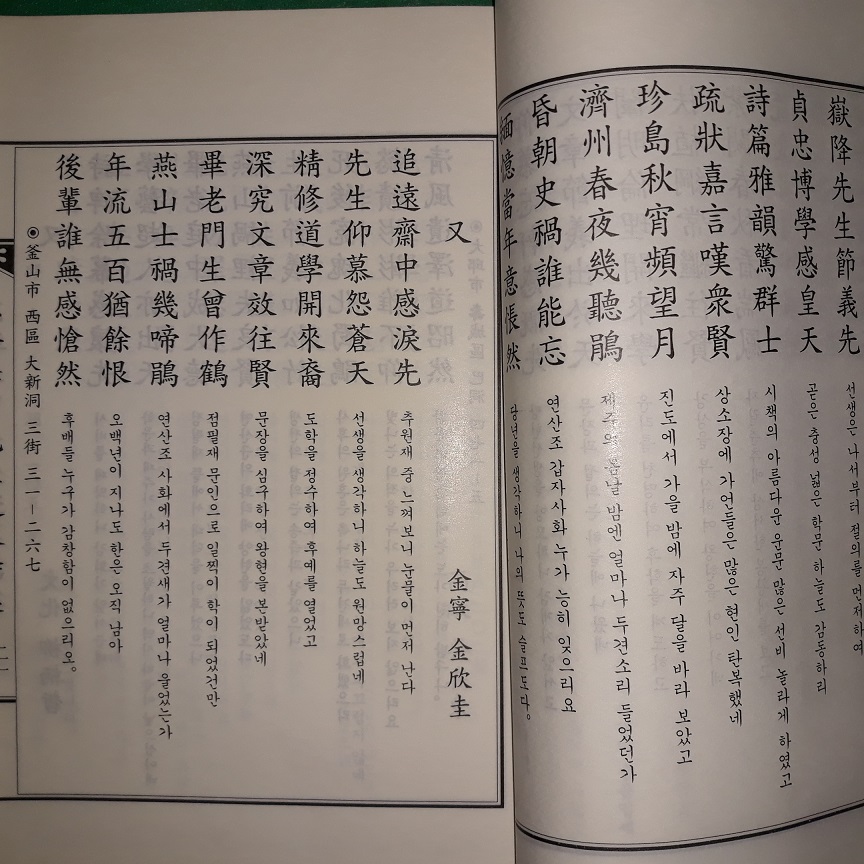 嶽降先生節義先 선생은 나서부터 절의를 먼저하여
貞忠博學感皇天 곧은 충성 넓은 학문 하늘도 감동하리
詩篇雅韻驚群士 시책의 아름다운 운문 많은 선비 놀라게 하였고
疏狀嘉言嘆衆賢 상소장에 가언들은 많은 현인 탄복했네
珍島秋宵頻望月 진도에서 가을 밤에 자주 달을 바라 보았고
濟州春夜幾聽鵑 제주의 봄날 밤엔 얼마나 두견소리 들었던가
昏朝史禍誰能忘 연산조 갑자사화 누가 능히 잊으리요
緬憶當年意悵然 당년을 생각하니 나의 뜻도 슬프도다.
又 金寧 金欣圭
追遠齋中感淚先 추원재 중 느껴보니 눈물이 먼저 난다
先生仰慕怨蒼天 선생을 생각하니 하늘도 원망스럽네
精修道學開來裔 도학을 정수하여 후예를 열었고
深究文章效往賢 문장을 심구하여 왕현을 본받았네
畢老門生曾作鶴 점필재 문인으로 일찍이 학이 되었건만
燕山士禍幾啼鵑 연산조 사화에서 두견새가 얼마나 울었는가
年流五百猶餘恨 오백년이 지나도 한은 오직 남아
後輩誰無感愴然 후배들 누구가 감창함이 없으리오.
◉釜山市 西區 大新洞 三街 三一-二六七